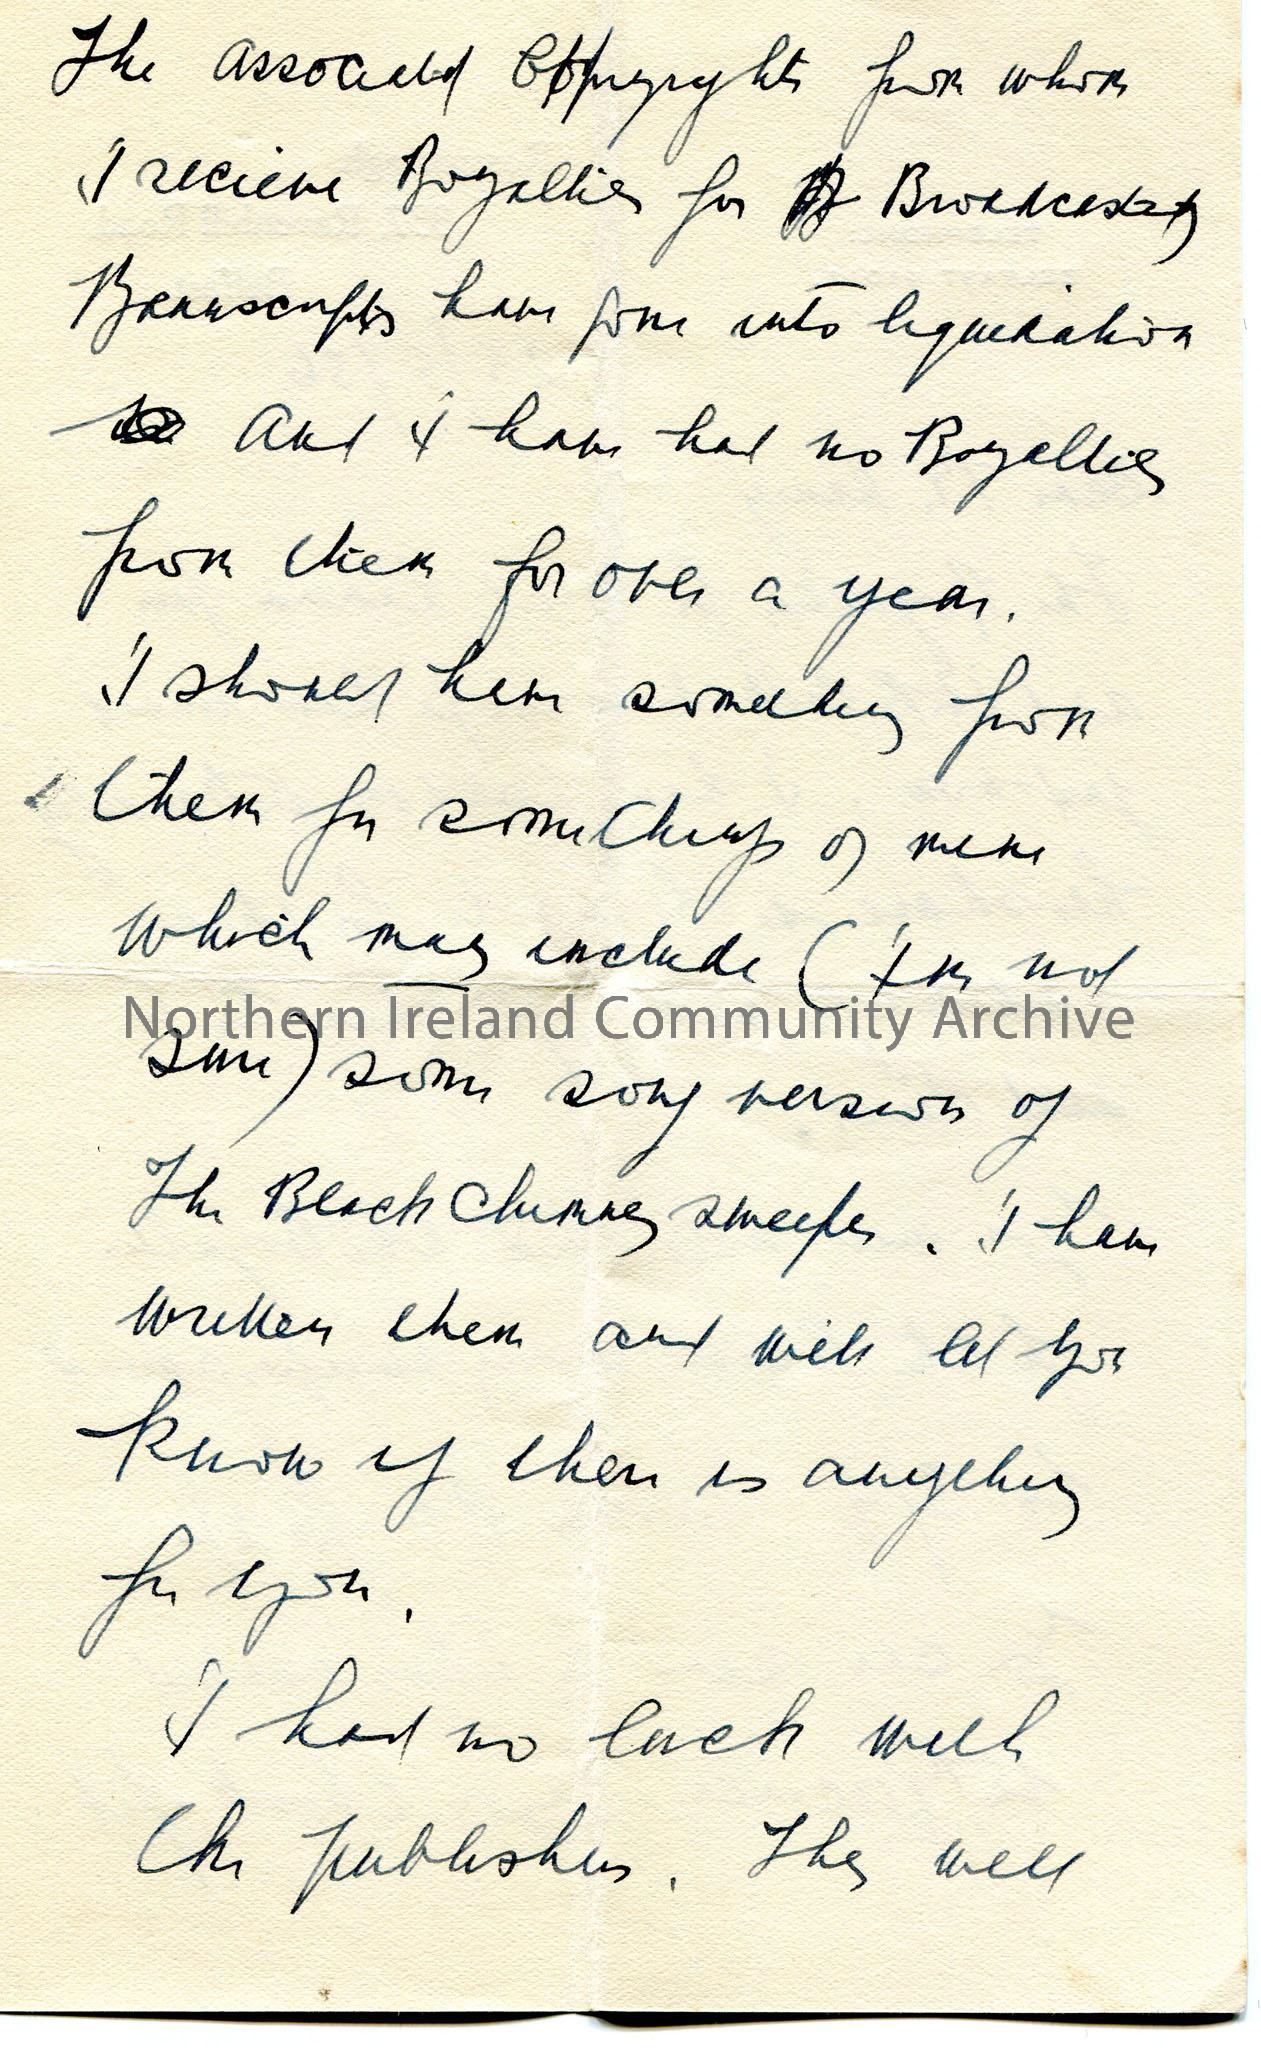 The Associated Copyrights from whom
I recieve Royalties for Broadcasting
Manuscripts have gone into liquidation
And I have had no Royalties
from them for over a year.
I should have something from
them for some things of mine
which may include (I'm not
Northern Ireland Community Archive
sure) some song version of
The Black Chimney sweeper. I have
written them and will let you
know if there is anything
for you.
I had no luck with
the publishers. They will